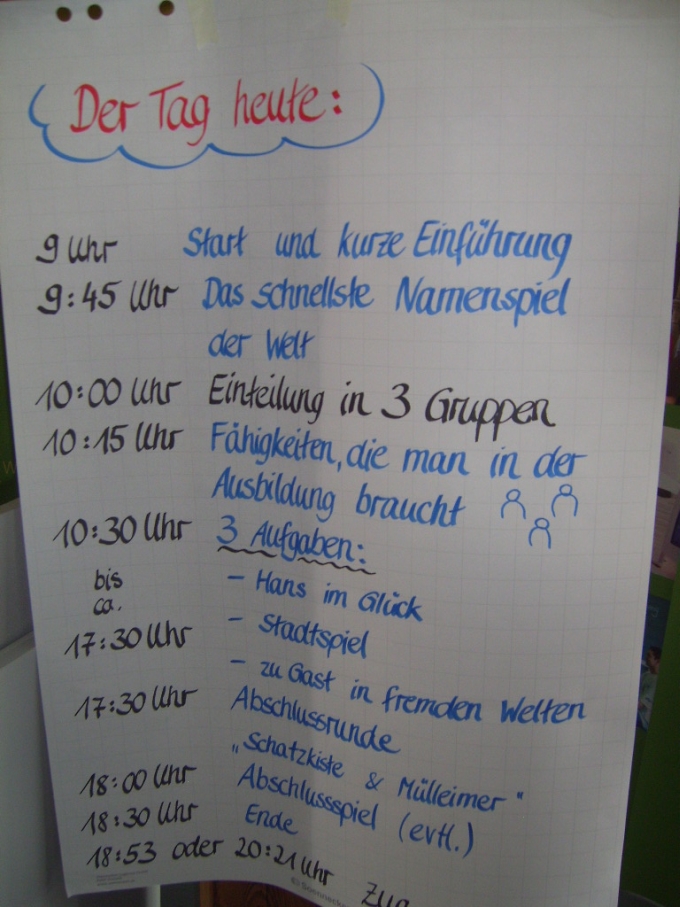 Der Tag heute:
9 Uhr Start und kurze Einführung
9:45 Uhr Das schnellste Namenspiel
der Welt
10:00 Uhr Einteilung in 3 Gruppen
10:15 Uhr Fähigkeiten, die man in der
Ausbildung braucht
10:30 Uhr 3 Aufgaben:
bis
ca.
17:30 Uhr
- Hans im Glück
- Stadtspiel
- zu Gast in fremden Welten
17:30 Uhr Abschlussrunde
„Schatzkiste & Mülleimer"
18:00 Uhr Abschlussspiel (evtl.)
18:30 Uhr Ende
18:53 oder 20:21 Uhr Zug